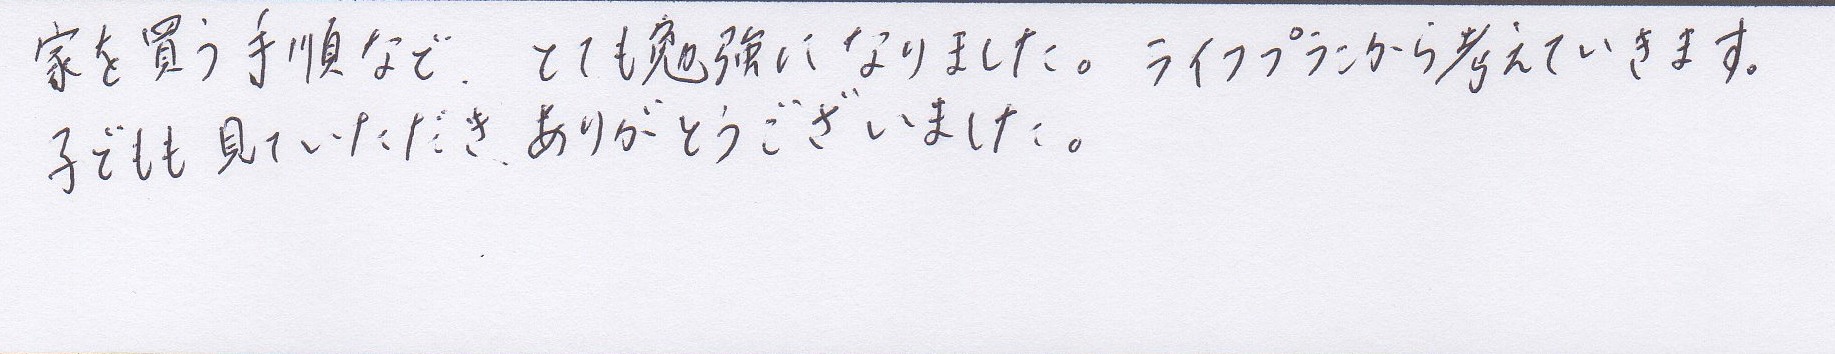 家を買う手順など、とても勉強になりました。ライフプランから考えていきます。
子どもも見ていただき、ありがとうございました。